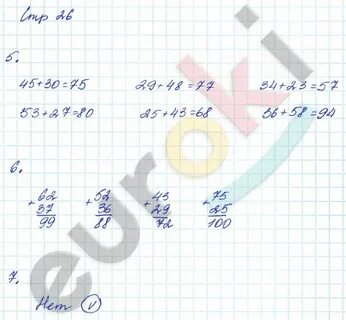 Стр 26
5.
45+30=75 29+48=77 34+23=57
53+27=80 25+43=68 36+58=94
6.
+62 +52 +43 +75
37 36 29 25
99 88 72 100
7.
Нет v
euroki